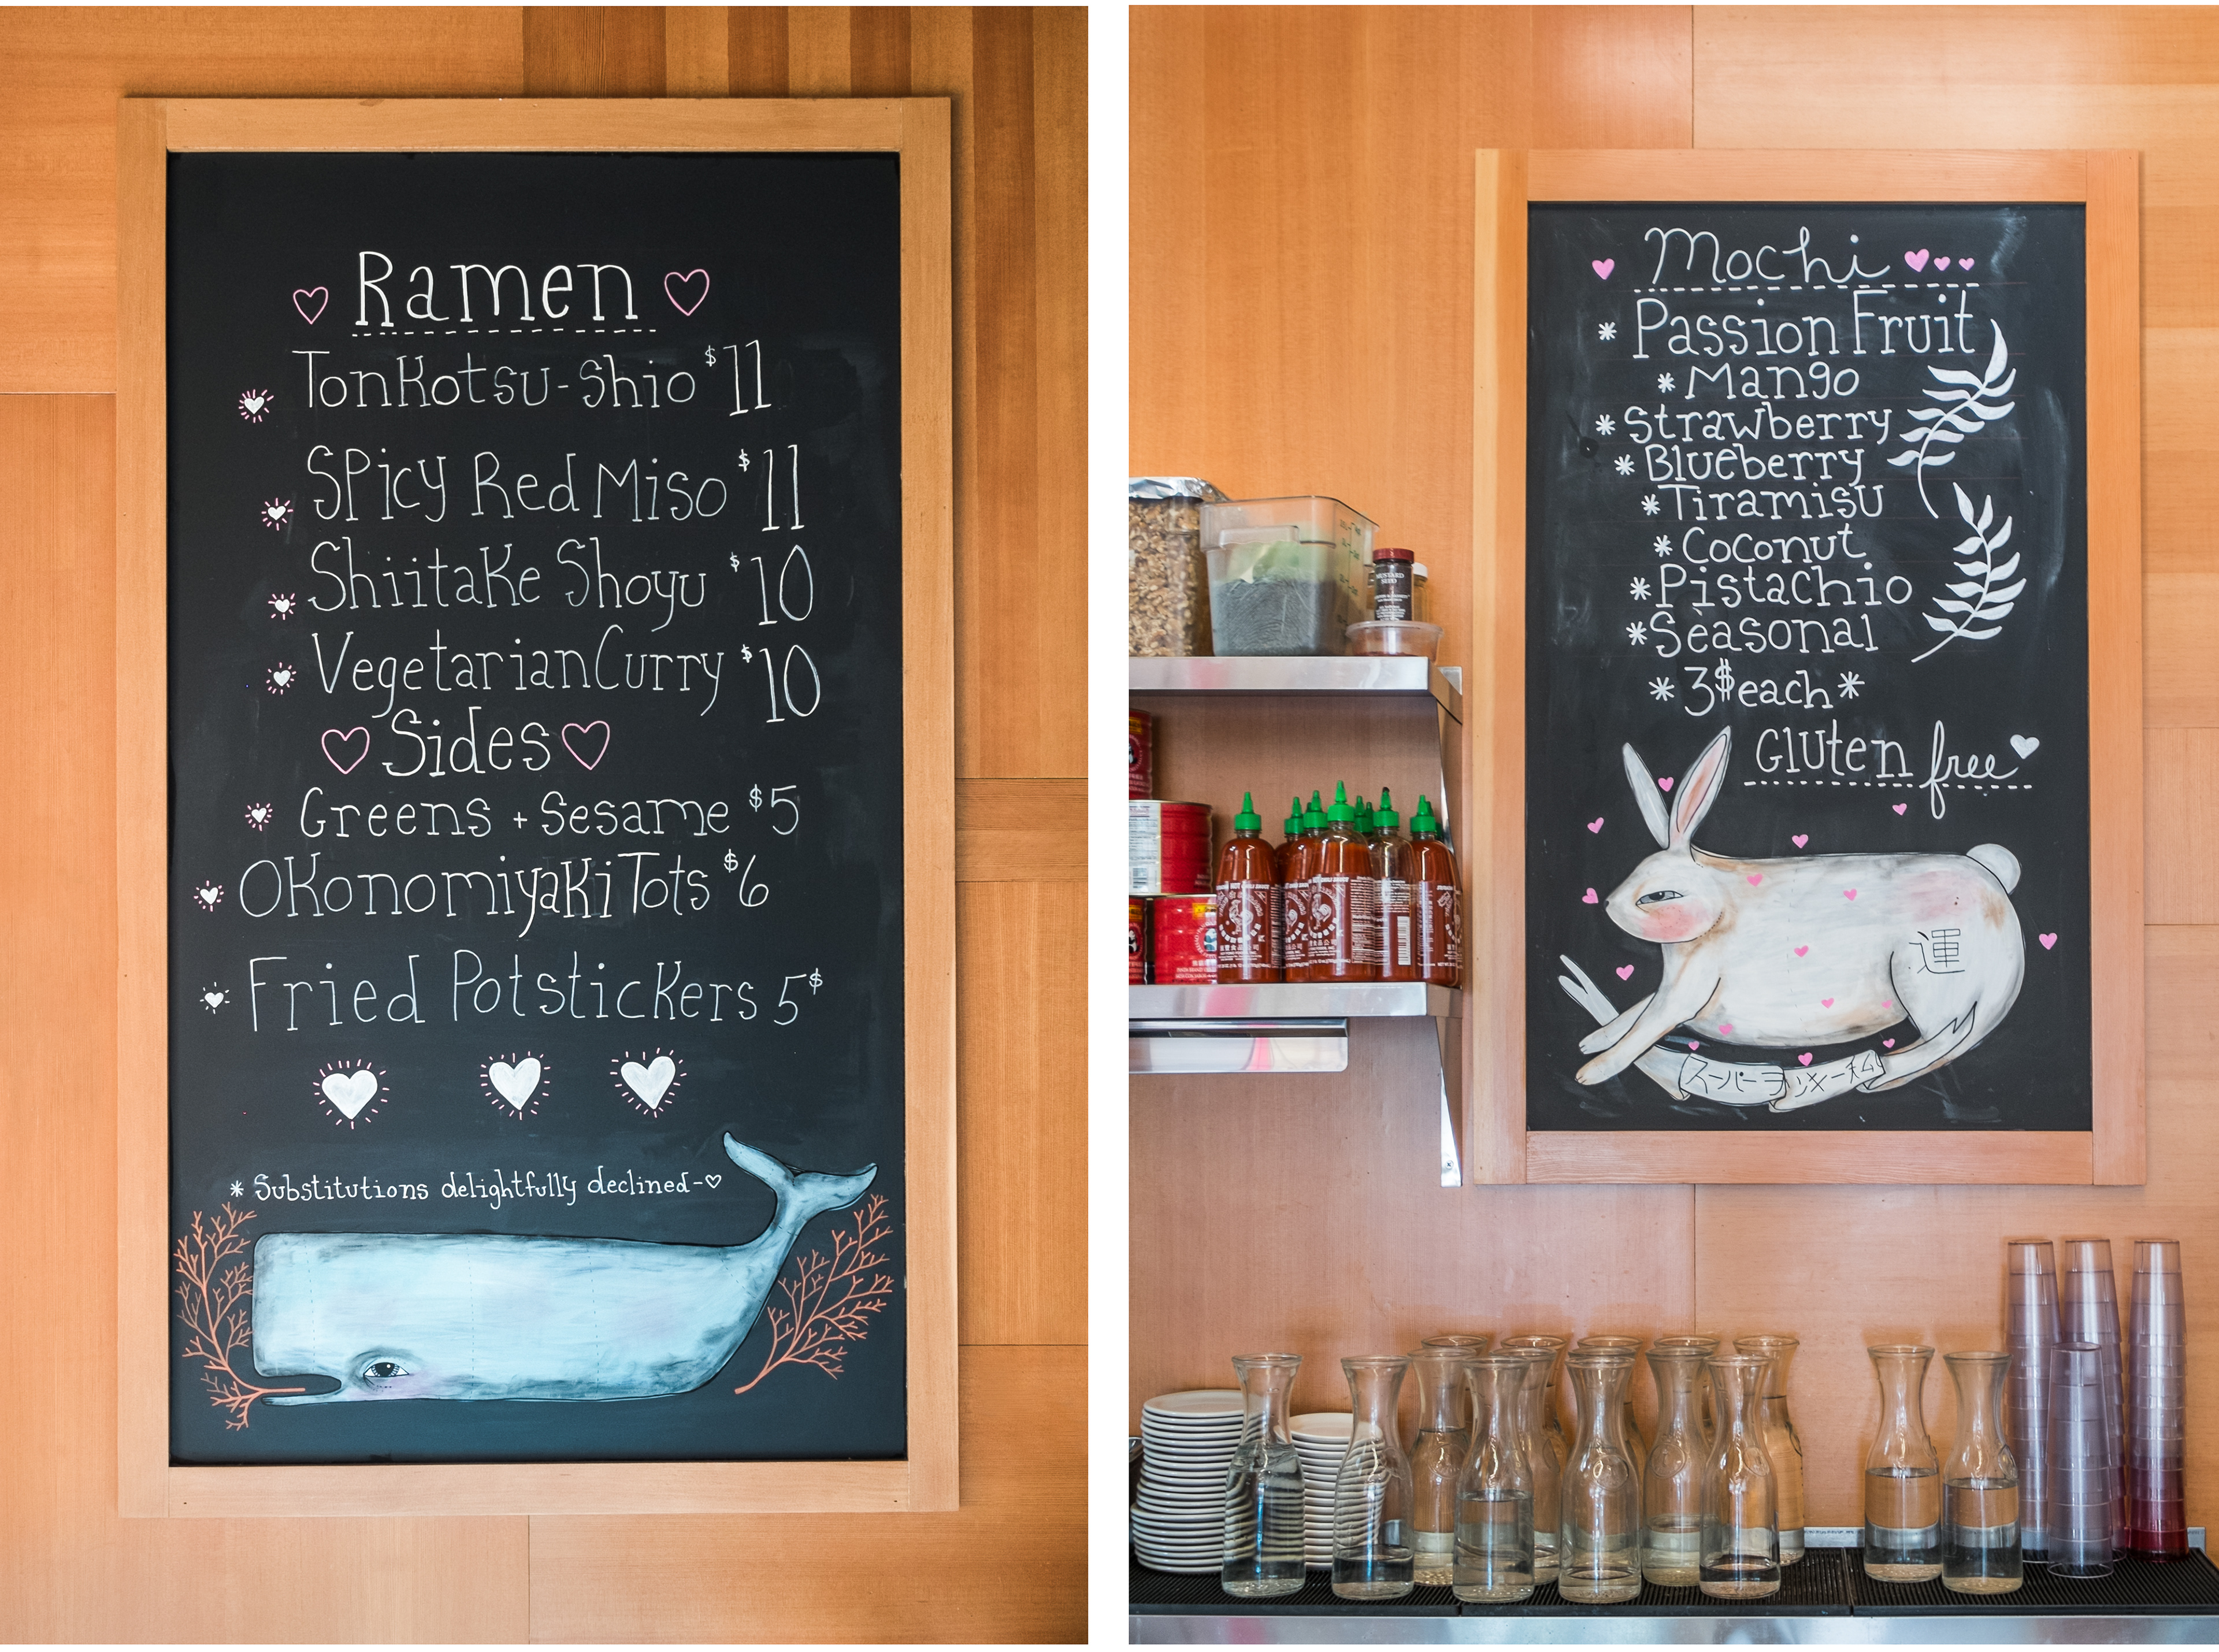 Ramen
TonKotsu-Shio $11
SPicy Red Miso $11
ShiitaKe Shoyu $10
Vegetarian Curry $10
Sides
Greens + Sesame $5
OKonomiyaKi Tots $6
Fried PotsticKers 5$
* Substitutions delightfully declined-♡
Mochi
* Passion Fruit
* Mango
* Strawberry
* Blueberry
* Tiramisu
* Coconut
* Pistachio
* Seasonal
* 3$ each *
Gluten free
運
スーパーヲツキー私
MUSTARD
SEED